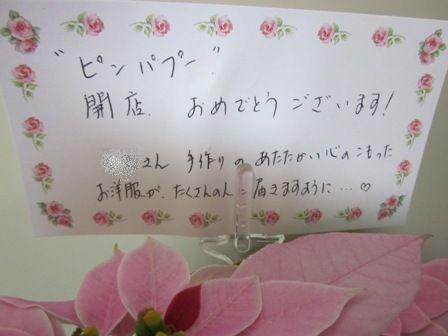 "ピンパプー"
開店、おめでとうございます!
さん 手作りの あたたかい心のこもった
お洋服が、たくさんの人に届きますように…♡